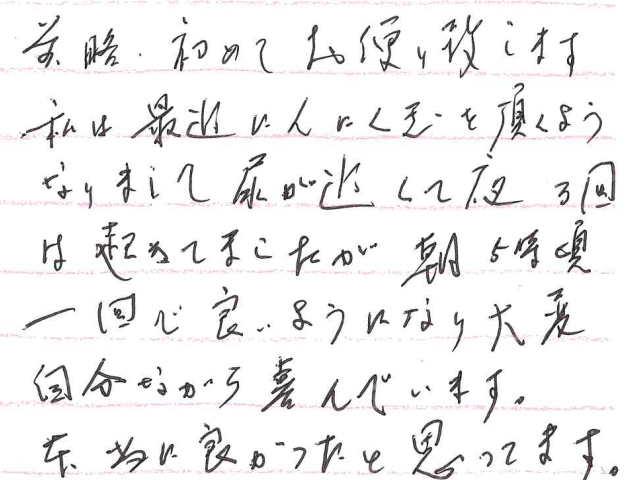 前略 初めてお便り致します
私は最近にんにく玉を頂くよう
なりまして尿が近くて夜3回
は起きてましたが朝5時頃
一回で良いようになり大変
自分ながら喜んでいます。
本当に良かったと思ってます。